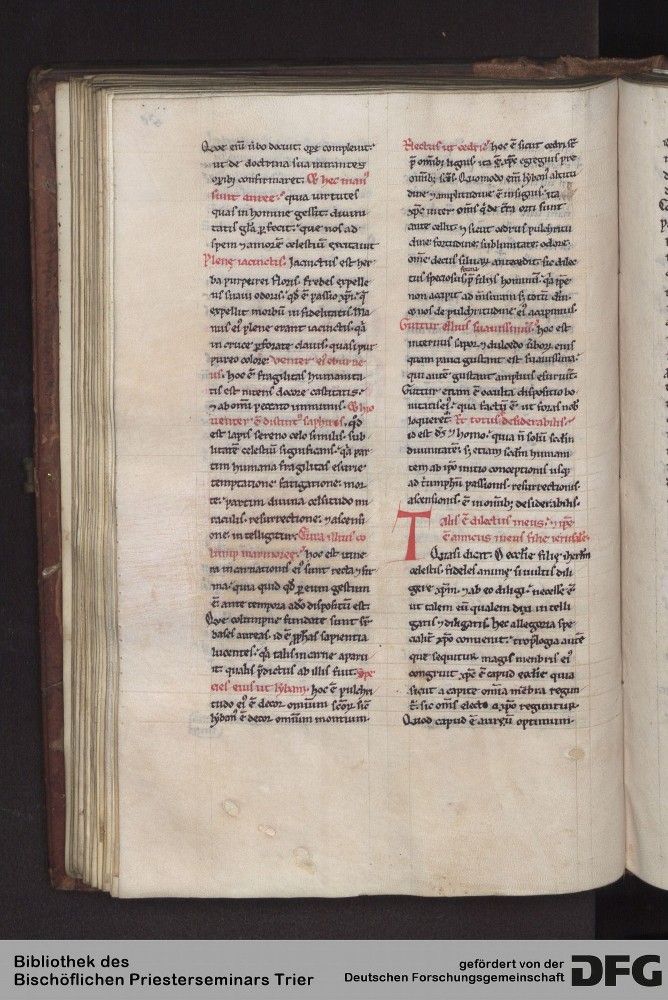 Que eni͞ u̓bo docuit. oꝑe compleuit.
ut de doctrina sua intrantes
oꝑibꝰ confirmaret. Q̇ hec manꝰ
sunt auree. quia uirtutes
quas in homine gessit. diuini
tatis gl̄a ꝑfecit. que nos ad
spem ⁊ amorē celestiū excitauit
Plenę iacinctis. Iacinctus est her
ba purpurei floris. fredes expelle
ns suaui odoris. qđ ē passio xp̄i. q̄
expellit morbū infidelitatis. Ma
nus eiꝰ plene erant iacinctis. q̄a
in cruce ꝑforate clauis. quasi pur
pureo colore. Venter eiꝰ eburne
us. hoc ē fragilitas humanita
tis est nitens decore castitatis.
⁊ ab omī peccato inmunis. Q̇
uenter ē distinctꝰ saphiris. qđ
est lapis sereno celo similis. sub
litatē celestiū significans. q̄a par
tim humana fragilitas esurie
temptatione fatigatione. mor
te. partim diuina celsitudo mi
raculis. resurrectione. ⁊ ascensi
one. intelligitur. Crura illius co
lumpnę marmoreę. hoc est itine
ra incarnationis eiꝰ sunt recta ⁊ fir
ma. quia quid qđ ꝑ eum gestum
ē. ante tempora a dō dispositū est.
Que columpne fundate sunt sr̄
bases aureas. id ē ꝓphas sapientia
lucentes. q̄a talis in carne apparu
it. qualis p̄dictus ab illis fuit. Spe
cies eius ut lybani. hoc ē pulchri
tudo eiꝰ ē decor omnium sc̄oꝝ. sic̄
lybanꝰ ē decor omnium montium.
Electus ut cedriꝰ hoc ē sicut cedri sc̄
p̄ omībꝫ lignis. ita ē xp̄c egregius pre
omībꝫ sc̄is. Quomodo eni͞ lybanꝰ altitu
dine ⁊ amplitudine ē insignis. ita
xp̄c inter oms̄ q̇ de t̄ra orti sunt
ante cellit. ⁊ sicut cedrus pulchritu
dine. fortitudine. sublimitate. odore.
omē decus siluaꝝ antecedit. sic dilec
tus speciosus forma p̄ filiis hominū. q̄a ip̄e
non accepit ad mensuram sp̄c totū. ōm
ēs nos de pulchritudine eiꝰ accepimus.
Guttur illius suauissimūꝰ. hoc est
internus sapor. ⁊ dulcedo u̓borū eius
quam pauci gustant est suauissima.
qui autē gustant amplius esuriūt.
Guttur etiam ē occulta dispositio bo
nitatis eiꝰ. qua factū ē. ut foras nob̄
loqueret̉. Et totus desiderabilis.
id est dꝰs ⁊ homo. quia n̄ solū scđm
diuinitatē. sꝫ etiam scđm humani
tem ab ip̄o initio conceptionis usqꝫ
ad triumphū passionis. resurrectionis.
ascensionis. ē in omībꝫ desiderabilis.
Talis ē dilectus meus. ⁊ ip̄e
ē amicus meus filie ierusalē.
Quasi dicit. O ecclie filię iherlm̄
celestis. fideles animę. si uultis dili
gere xpm̄. ⁊ ab eo diligi. necesse ē.
ut talem eū qualem dixi intelli
gatis ⁊ diligatis. hec allegoria spe
cialit̉ xp̄o conuenit. tropologia autē
que sequitur magis membris eiꝰ
congruit. xp̄c ē capud ecclīe. quia
sicut a capite omīa mēbra regun
t̄. sic oms̄ electi a xp̄o reguntur.
Quod capud ē aurū optimum.
Bibliothek des
Bischöflichen Priesterseminars Trier
gefördert von der
Deutschen Forschungsgemeinschaft
DFG